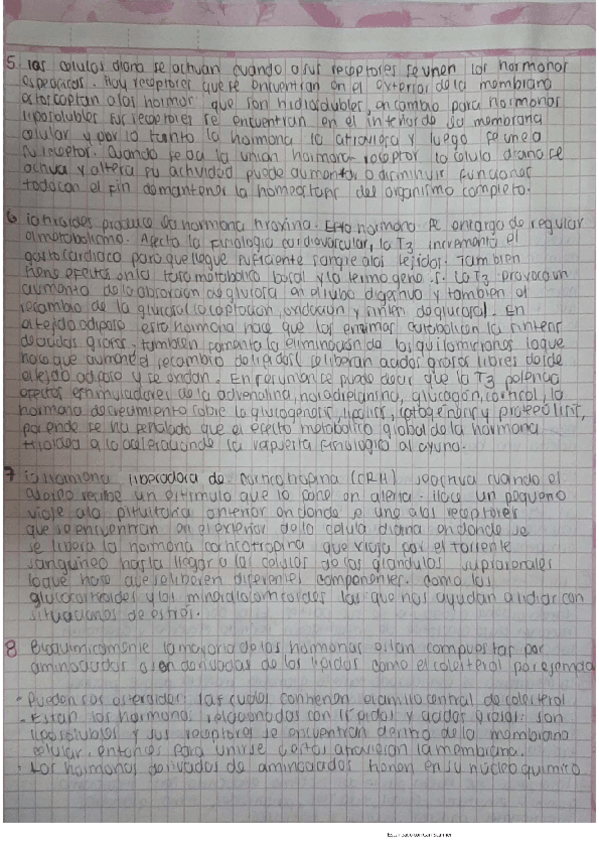 5 Las celulas diana se activan cuando a sus receptores se unen las hormonas
especificas. Hay receptores que se encuentran en el exterior de la membrana
estos captan a las hormonas que son hidrosolubles, en cambio para hormonas
liposolubles sus receptores se encuentran en el interior de su membrana
celular y por lo tanto la hormona la atraviesa y luego se une a
su receptor. Cuando se da la union hormona-receptor la celula diana se
activa y altera su actividad puede aumentar o disminuir funciones
todo con el fin de mantener la homeostasis del organismo completo.
6 La tiroides produce la hormona tiroxina. Esta hormona se encarga de regular
el metabolismo. Afecta la fisiologia cardiovascular, la T3 incrementa el
gasto cardiaco para que llegue suficiente sangre a los tejidos. Tambien
tiene efectos en la tasa metabolica basal y la termogenesis. La T3 provoca un
aumento de la absorcion de glucosa en el tubo digestivo y tambien el
recambio de la glucosa( la captacion, oxidacion y sintesis de glucosa). En
el tejido adiposo esta hormona hace que las enzimas catabolicen la sintesis
de acidos grasos, tambien aumenta la eliminacion de los quilomicrones lo que
hace que aumente el recambio de lipidos( se liberan acidos grasos libres desde
el tejido adiposo y se oxidan. En resumen se puede decir que la T3 potencia
efectos estimuladores de la adrenalina, noradrenalina, glucagon, cortisol, la
hormona de crecimiento sobre la glucogenesis, lipolisis, cetogenesis y proteolisis,
por ende se ha señalado que el efecto metabolico global de la hormona
tiroidea a la aceleracion de la respuesta fisiologica al ayuno.
7 La hormona liberadora de corticotropina (CRH) se activa cuando el
cuerpo recibe un estimulo que lo pone en alerta. Hace un pequeño
viaje a la pituitaria anterior en donde se une a los receptores
que se encuentran en el exterior de la celula diana en donde se
se libera la hormona corticotropina que viaja por el torriente
sanguineo hasta llegar a las celulas de las glandulas suprarrenales
lo que hace que se liberen diferentes componentes. como los
glucocorticoides y los mineralocorticoides los que nos ayudan a lidiar con
situaciones de estres.
8 Bioquimicamente la mayoria de las hormonas estan compuestas por
aminoacidos o son derivadas de los lipidos como el colesterol por ejemplo
· Pueden ser esteroides: las cuales contienen el anillo central de colesterol
· Estan las hormonas relacionadas con lipidos y acidos grasos: son
liposolubles y sus receptores se encuentran dentro de la membrana
celular. entonces para unirse estas atraviesan la membrana.
· Las hormonas derivadas de aminoacidos tienen en su núcleo quimico
Escaneado con CamScanner